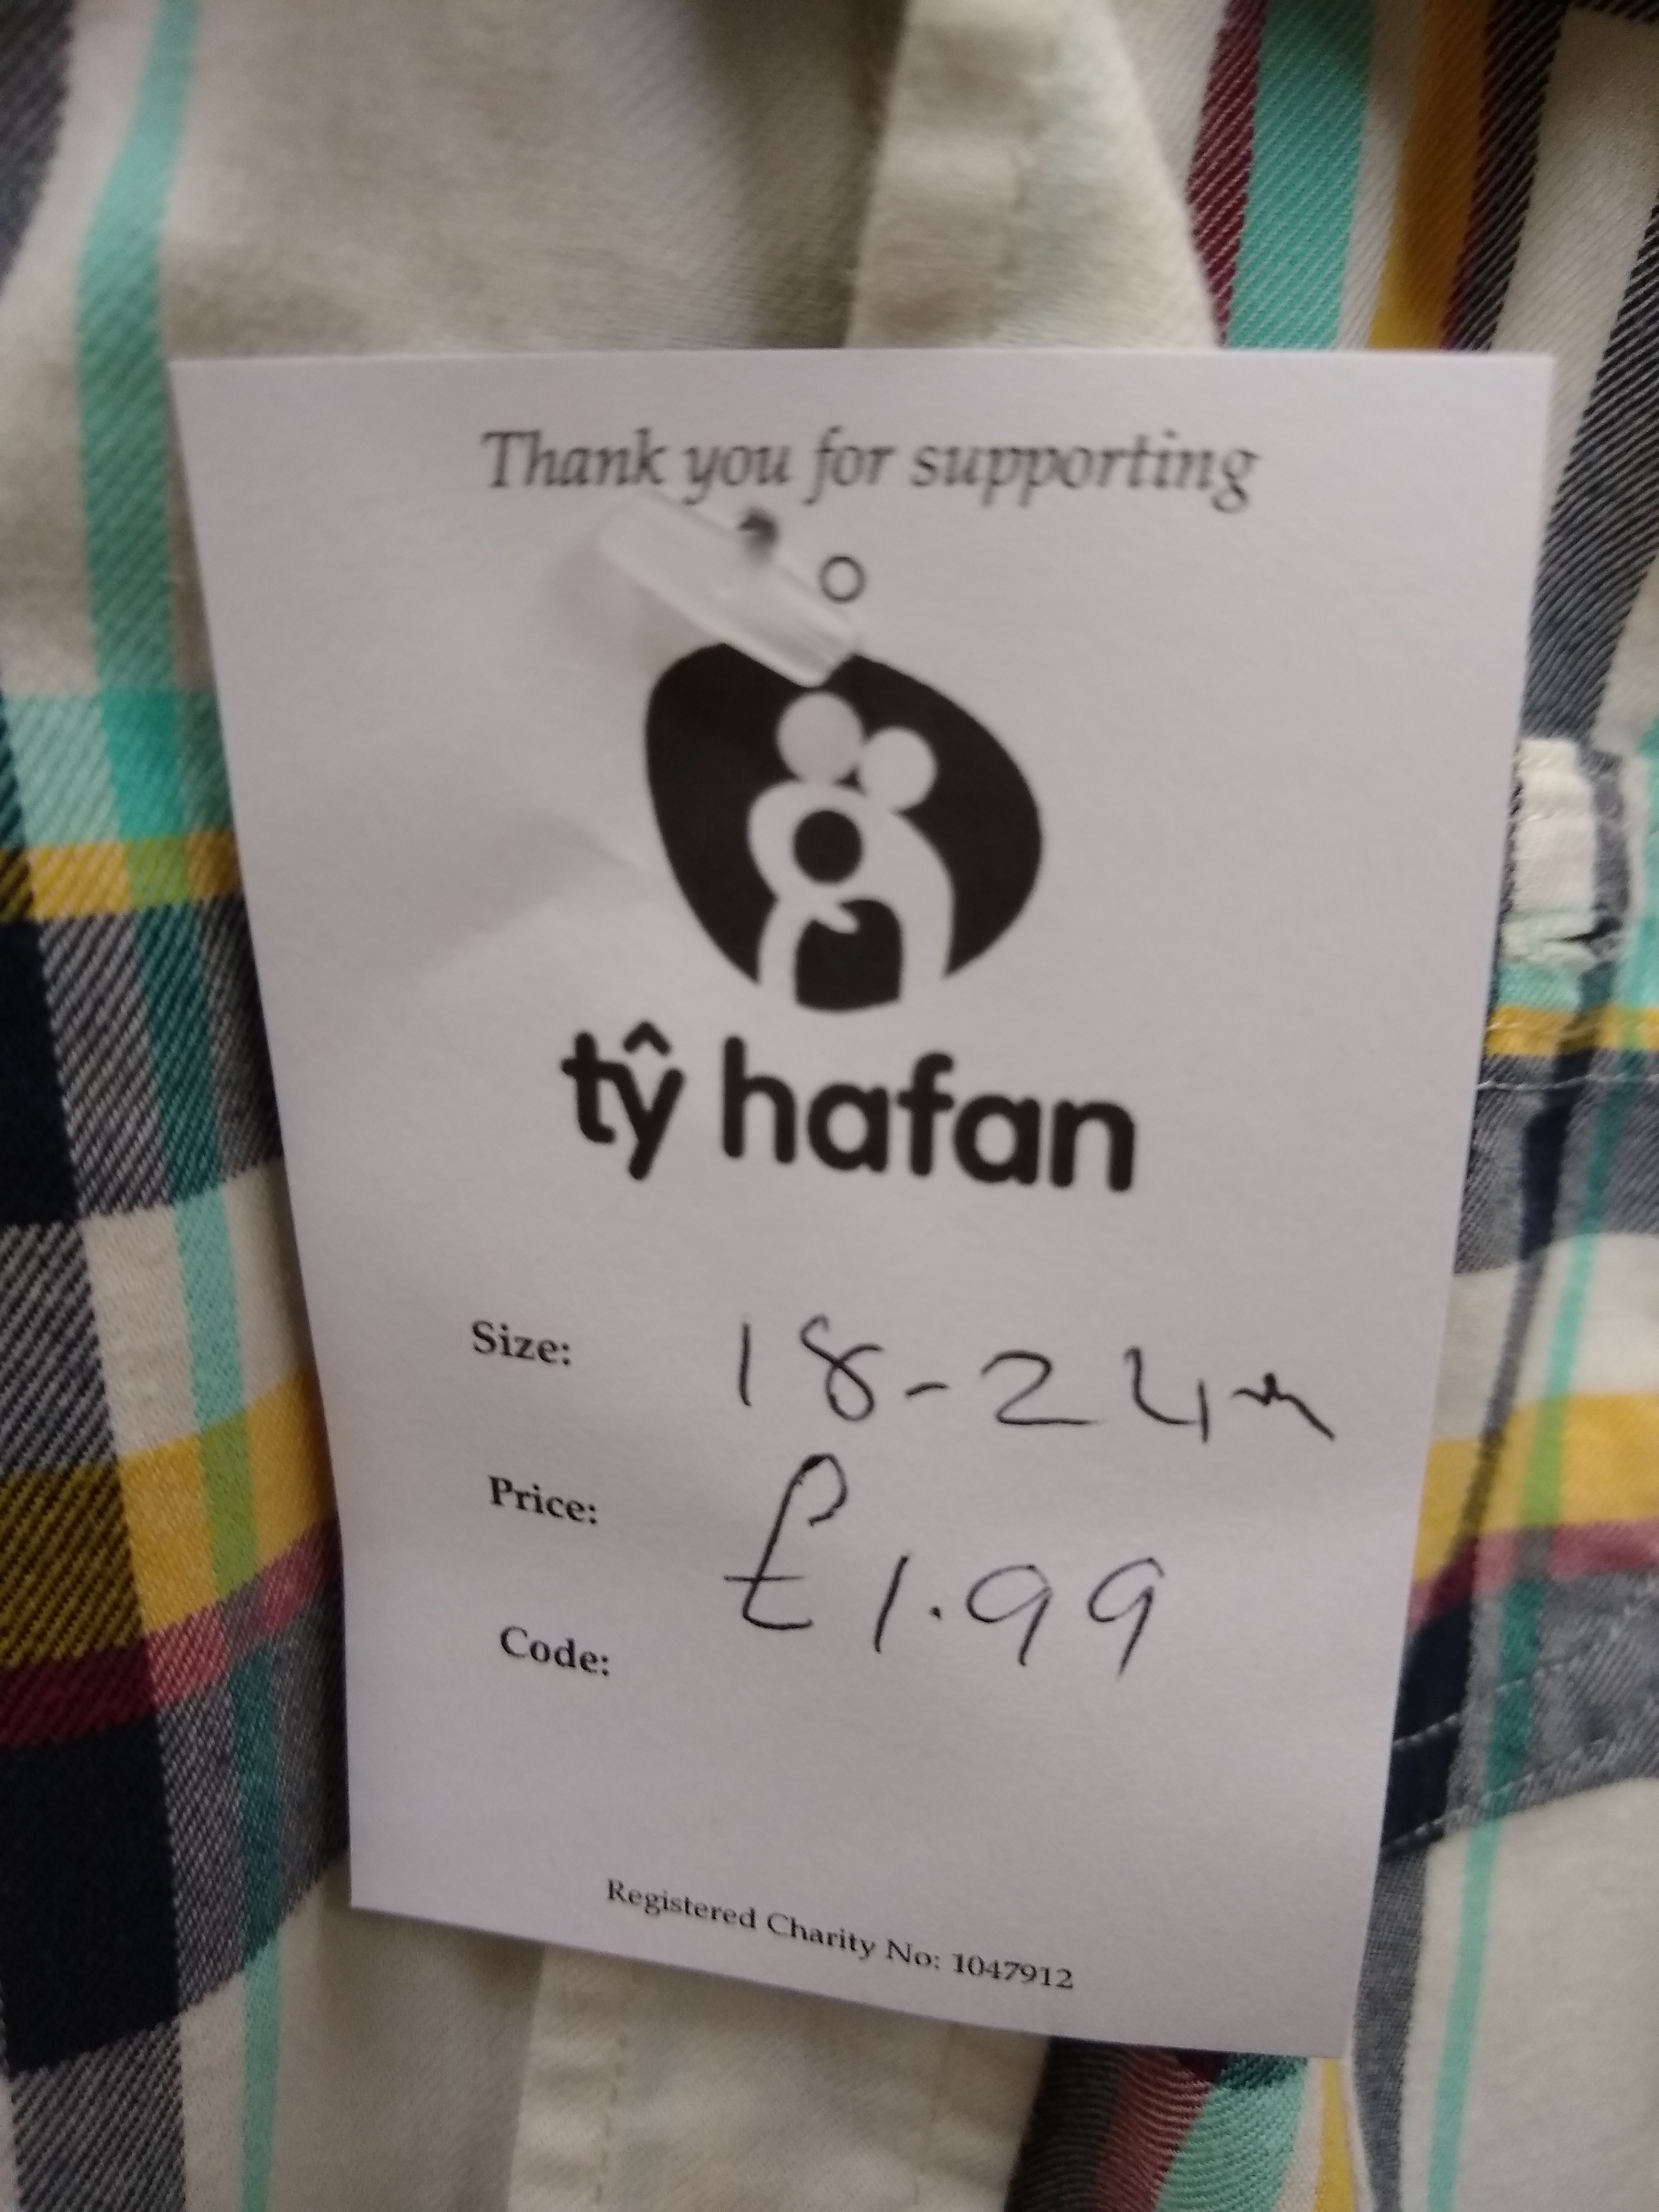 Thank you for supporting
tŷ hafan
Size: 18-24m
Price: £1.99
Code:
Registered Charity No: 1047912